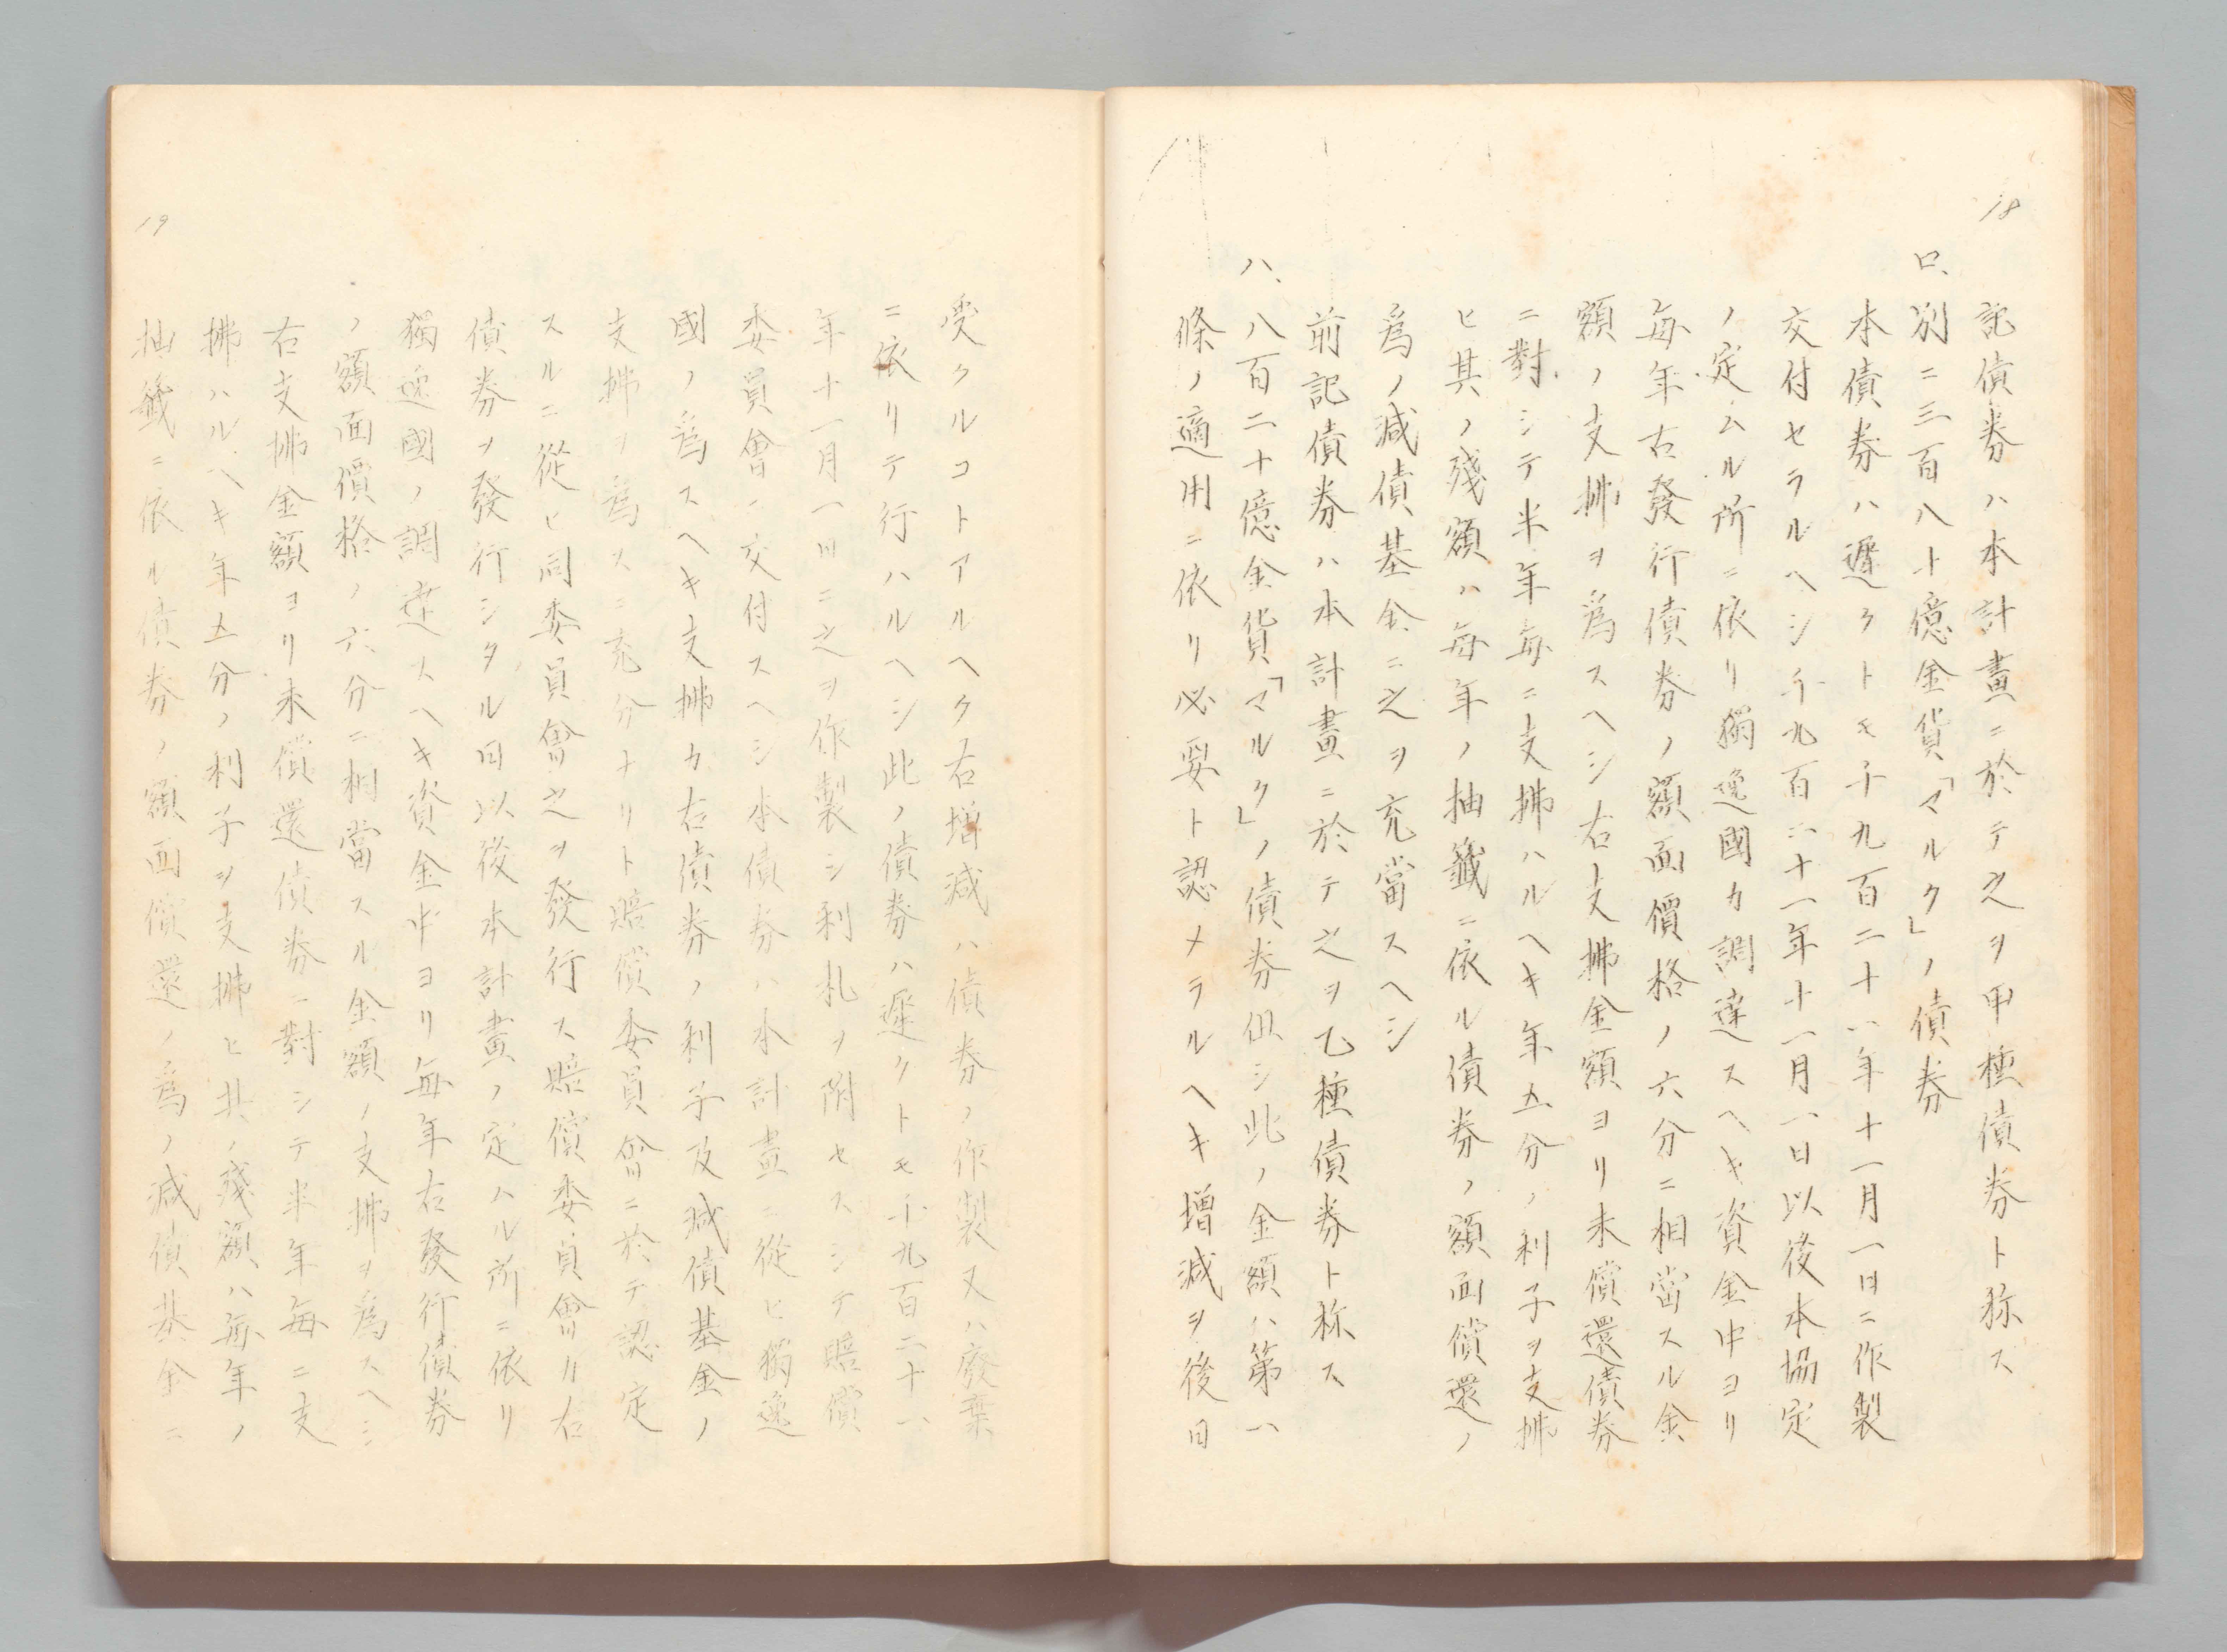 18
記債券ハ本計畫ニ於テ之ヲ甲種債券ト称ス
ロ、別ニ三百八十億金貨「マルク」ノ債券
本債券ハ遲クトモ千九百二十一年十一月一日ニ作製
交付セラルヘシ千九百二十一年十一月一日以後本協定
ノ定ムル所ニ依リ獨逸國カ調達スヘキ資金中ヨリ
毎年右發行債券ノ額面價格ノ六分ニ相當スル金
額ノ支拂ヲ爲スヘシ右支拂金額ヨリ未償還債券
ニ對シテ半年毎ニ支拂ハルヘキ年五分ノ利子ヲ支拂
ヒ其ノ殘額ハ毎年ノ抽籤ニ依ル債券ノ額面償還ノ
爲ノ減債基金ニ之ヲ充當スヘシ
前記債券ハ本計畫ニ於テ之ヲ乙種債券ト称ス
ハ、八百二十億金貨「マルク」ノ債券但シ此ノ金額ハ第一
條ノ適用ニ依リ必要ト認メラルヘキ増減ヲ後日
19
受クルコトアルヘク右増減ハ債券ノ作製又ハ廢棄
ニ依リテ行ハルヘシ此ノ債券ハ遲クトモ千九百二十一
年十一月一日ニ之ヲ作製シ利札ヲ附セスシテ賠償
委員會ニ交付スヘシ本債券ハ本計畫ニ從ヒ獨逸
國ノ爲スヘキ支拂カ右債券ノ利子及減債基金ノ
支拂ヲ爲スニ充分ナリト賠償委員會ニ於テ認定
スルニ從ヒ同委員會之ヲ發行ス賠償委員會カ右
債券ヲ發行シタル日以後本計畫ノ定ムル所ニ依リ
獨逸國ノ調達スヘキ資金中ヨリ毎年右發行債券
ノ額面價格ノ六分ニ相當スル金額ノ支拂ヲ爲スヘシ
右支拂金額ヨリ未償還債券ニ對シテ半年毎ニ支
拂ハルヘキ年五分ノ利子ヲ支拂ヒ其ノ殘額ハ毎年ノ
抽籤ニ依ル債券ノ額面償還ノ爲ノ減債基金ニ